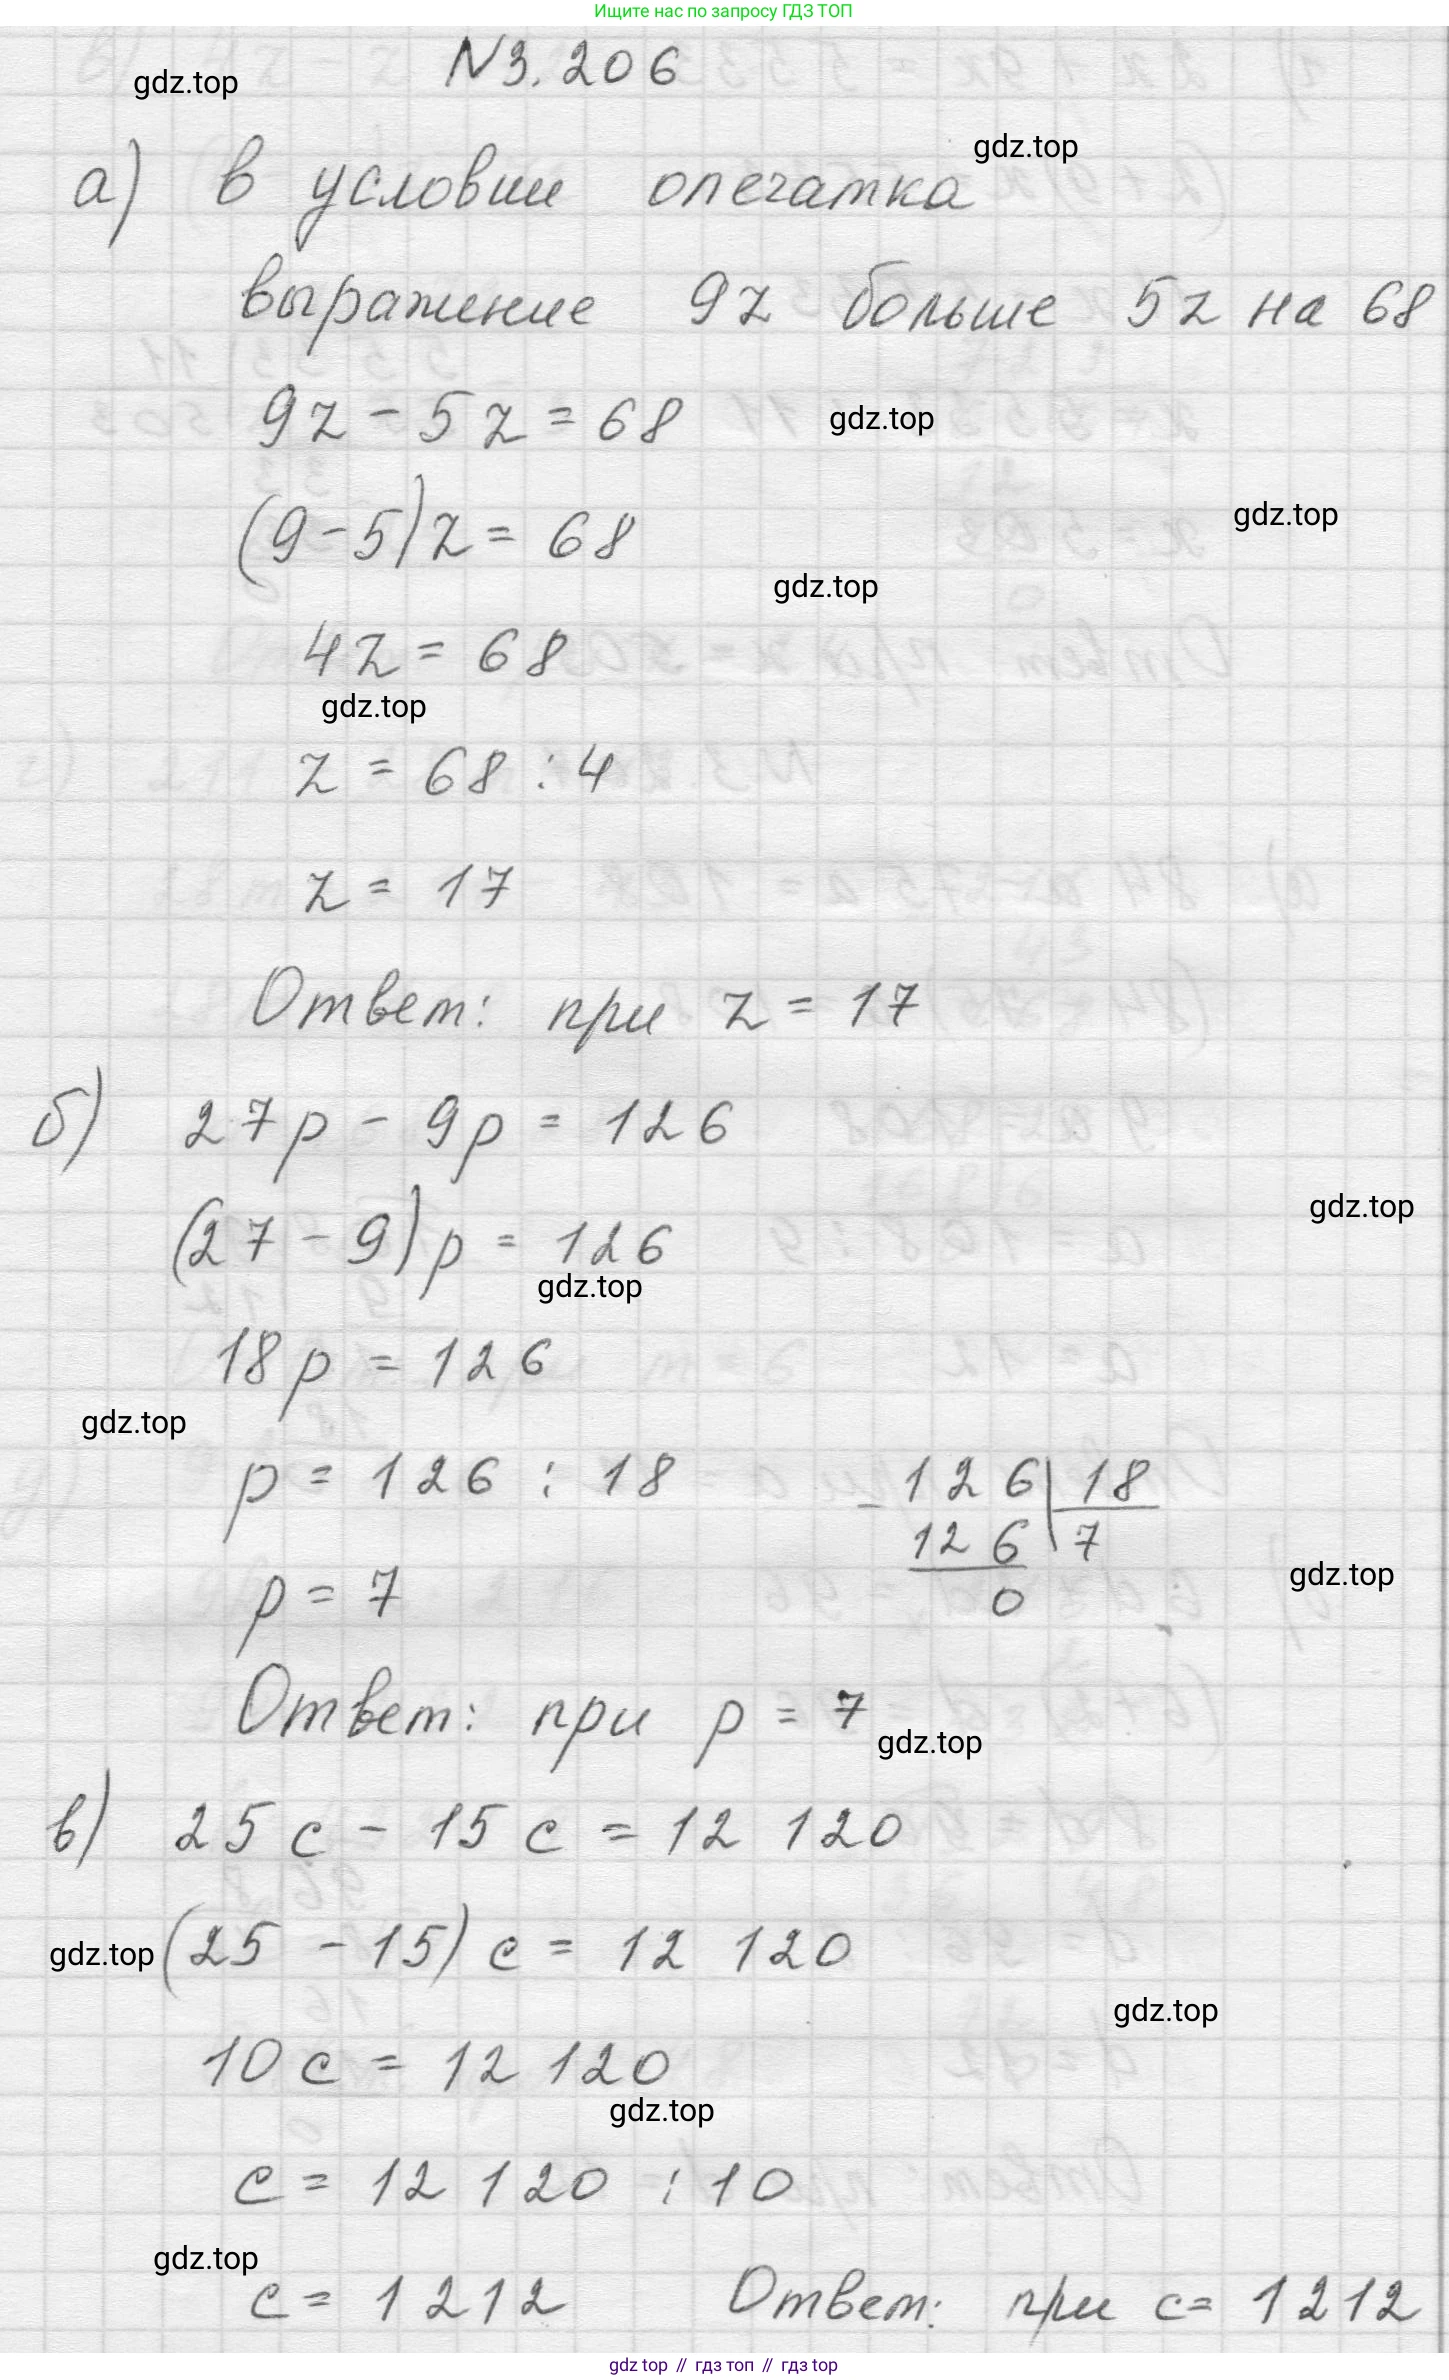 Ищите нас по запросу ГДЗ ТОП
N3.206
gdz.top
gdz.top
а) в условии опечатка
выражение 9z больше 5z на 68
9z - 5z = 68
gdz.top
(9-5)z = 68
gdz.top
gdz.top
4z = 68
gdz.top
z = 68 : 4
z = 17
Ответ: при z = 17
б) 27p - 9p = 126
(27 - 9)p = 126
gdz.top
gdz.top
18p = 126
gdz.top
p = 126 : 18
- 126 | 18
126 7
0
gdz.top
p = 7
Ответ: при p = 7
gdz.top
в) 25c - 15c = 12 120
gdz.top
(25 - 15)c = 12 120
gdz.top
10c = 12 120
gdz.top
c = 12 120 : 10
gdz.top
c = 1212 Ответ: при c = 1212
gdz top // гдз топ // гдз top